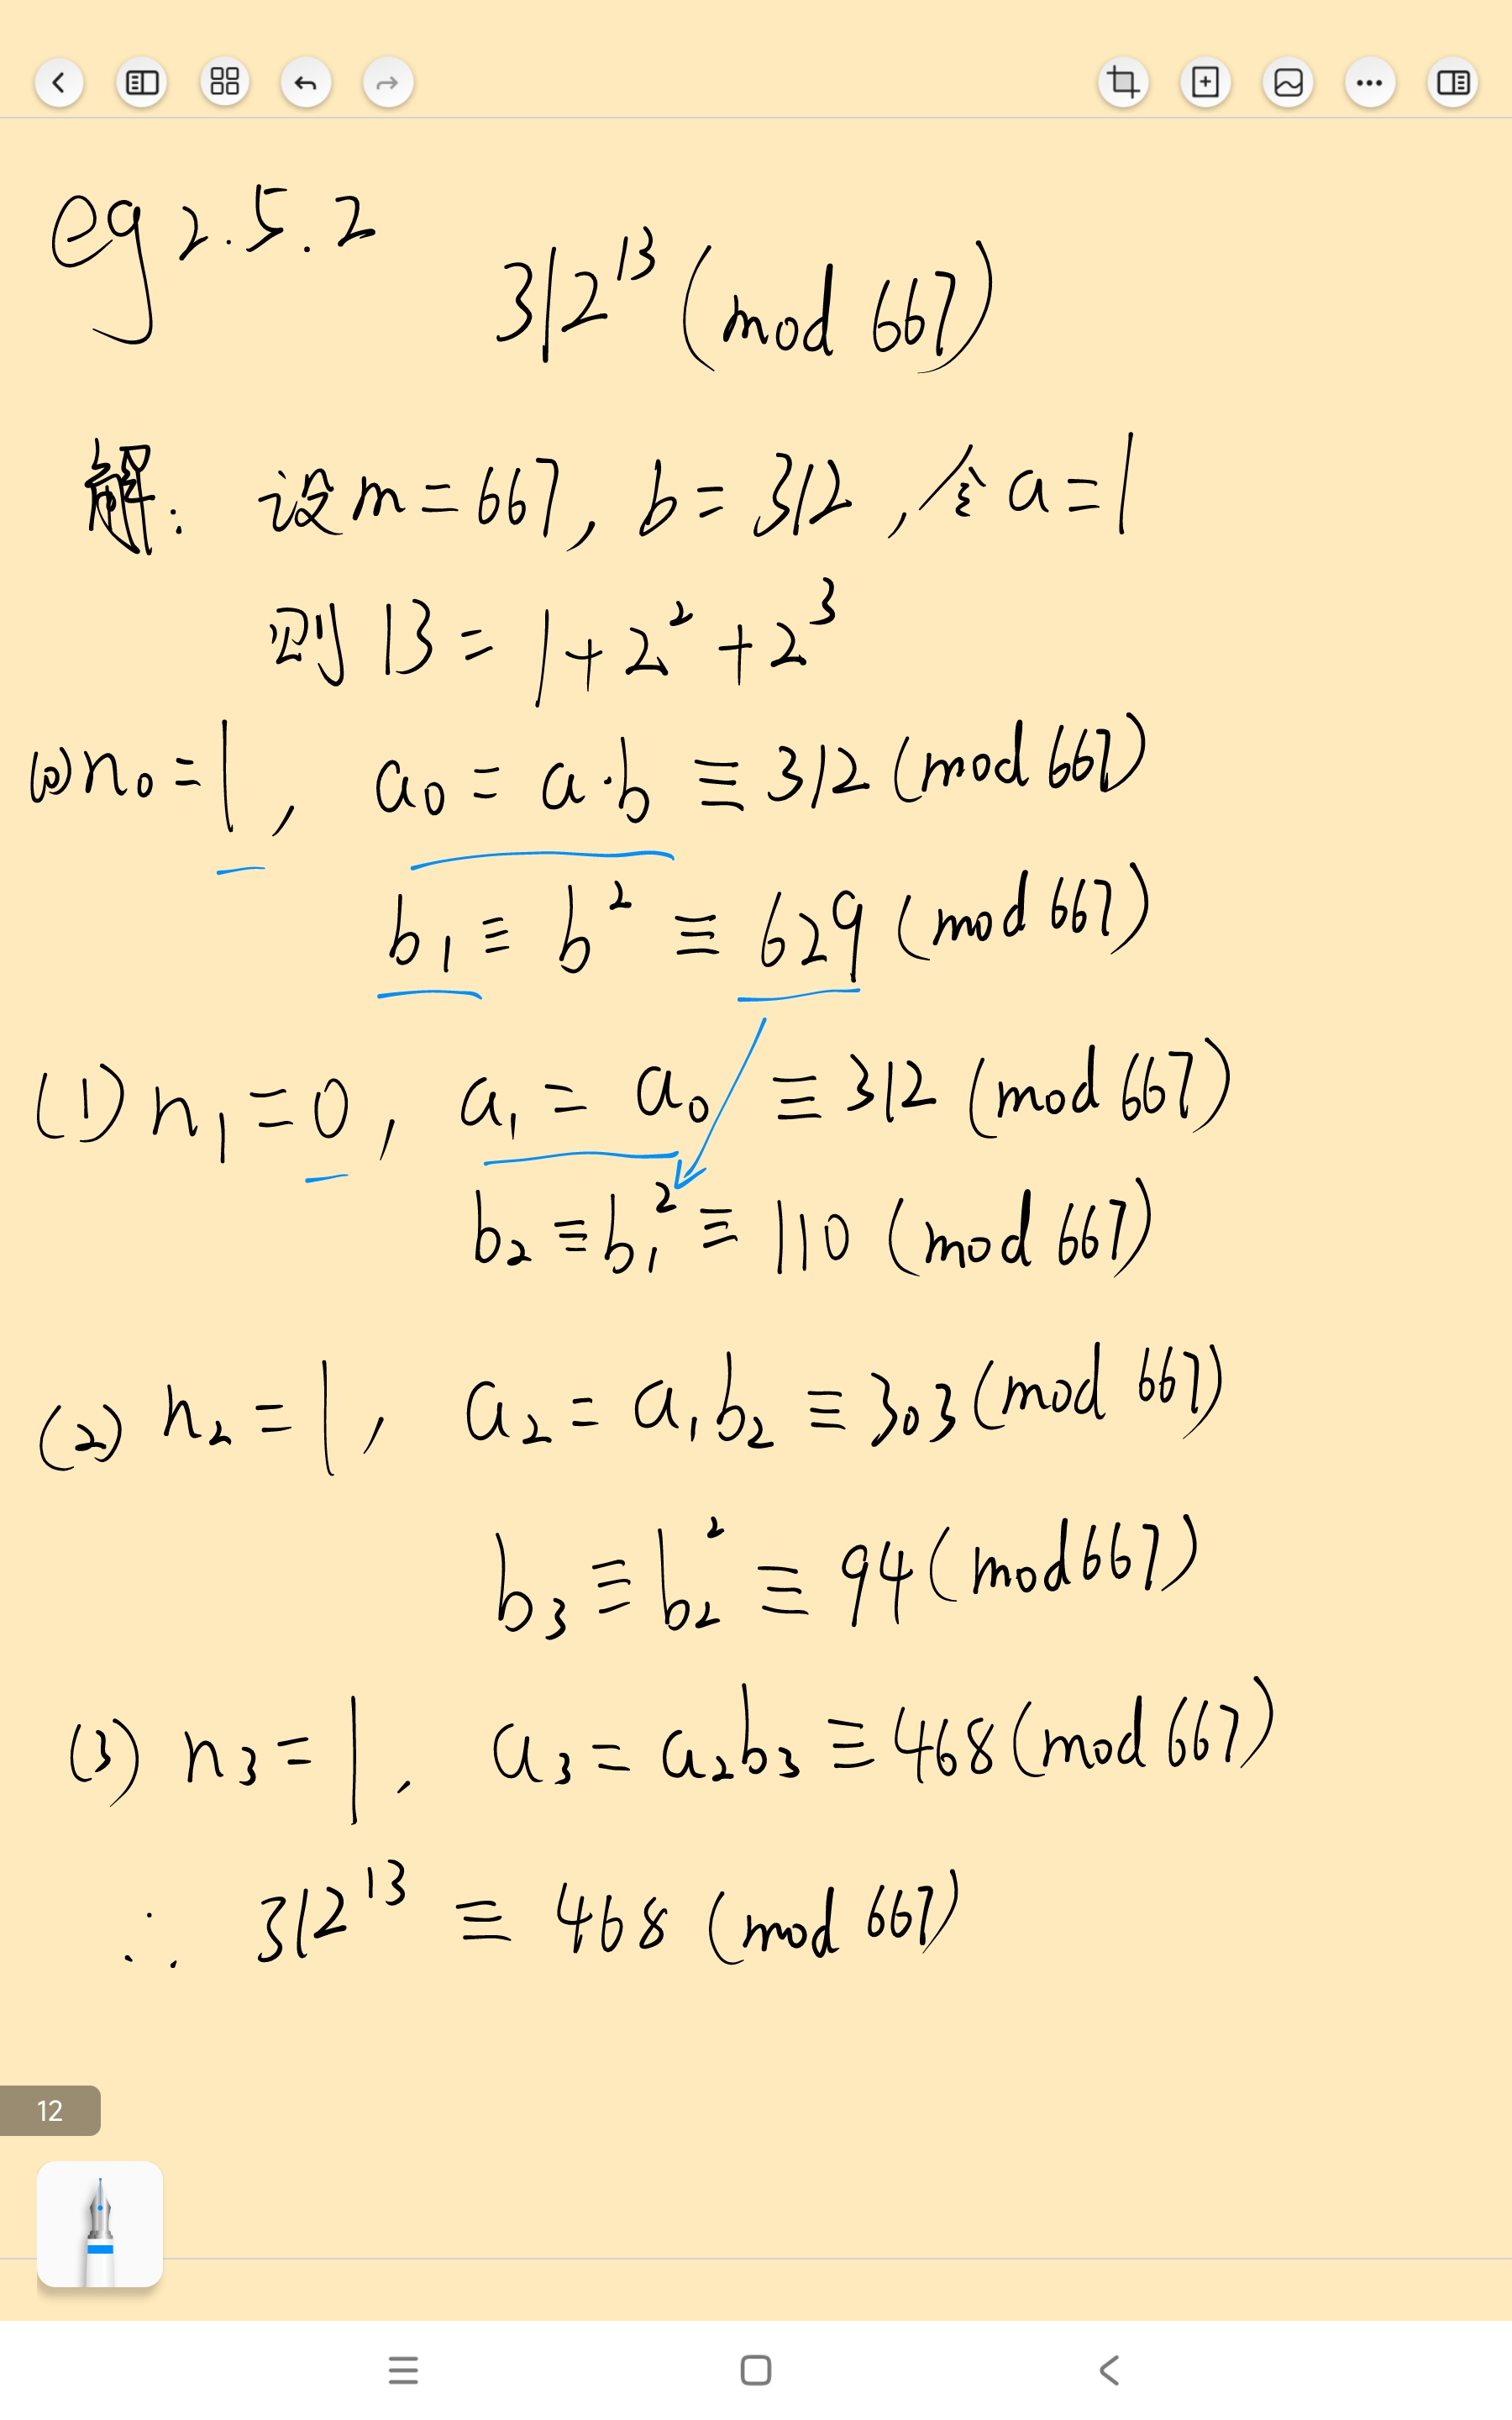 eg 2.5.2
312¹³ (mod 667)
解: 设m=667, b=312, 令a=1
则13=1+2²+2³
(0) n₀=1, a₀=a·b≡312 (mod 667)
b₁≡b²≡629 (mod 667)
(1) n₁=0, a₁=a₀≡312 (mod 667)
b₂≡b₁²≡110 (mod 667)
(2) n₂=1, a₂=a₁b₂≡303 (mod 667)
b₃≡b₂²≡94 (mod 667)
(3) n₃=1, a₃=a₂b₃≡468 (mod 667)
∴ 312¹³≡468 (mod 667)
12